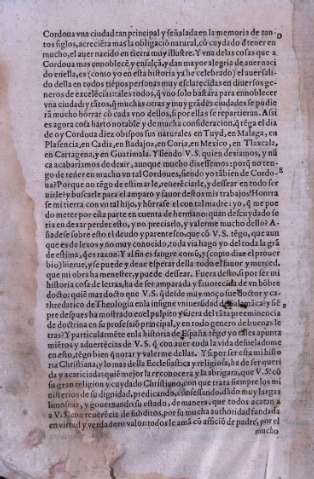 Cordoua vna ciudad tan principal y señalada en la memoria de tan-
tos siglos, acreciẽra mas la obligaciõ natural, cõ cuydado d tener en
mucho, el auer nacido en tierra muy illustre. Y vna delas cosas que a
Cordoua mas ennoblecẽ y ensalçã, y dan mayor alegria de auer naci
do en ella, es (como yo en esta historia ya he celebrado) el auer sali-
do della en todos tiẽpos personas muy esclarecidas en diuersos ge-
neros de excelẽcias
vna ciudad y otros, q̃ muchas otras y muy grãdes ciudades se pudie
rã mucho hõrrar cõ cada vno dellos, si por ellas se repartieran. Asi
es agora cosa harto notable y de mucha consideracion, q̃ tẽga el dia
de oy Cordoua diez obispos sus naturales en Tuyd, en Malaga, en
Plasencia, en Cadiz, en Badajoz, en Coria, en Mexico, en Tlaxcala,
en Cartagena, y en Guatimala. Y siendo V. S. quien deziamos, y nũ
ca acabariamos de dezir, aunque mucho dixessemos: porq̃ no ten-
go de tener en mucho vn tal Cordoues, siendo yo tãbien de Cordo-
ua? Porque no tẽgo de estimarle, reuerẽciarle, y dessear en todo ser
uirle? y buscarle para el amparo y fauor destos mis trabajos? Honra
se mi tierra con vn tal hijo, y
do meter por esta parte en cuenta de hermano: quan descuydado se
ria en dexar perder esto, y no preciarlo, y valerme mucho dello? A-
ñadese sobre esto el deudo y parentesco, que cõ V. S. tẽgo, que aun
que es de lexos y no muy conocido, toda via hago yo del toda la grã
de estima, que es razon. Y al fin es sangre comũ, y (como dize el prouer
bio) hierue, y se puede y deue esperar della todo el fauor y merced,
que mi obra ha menester, y puede dessear. Fuera desto, si por ser mi
historia cosa de letras, ha de ser amparada y fauorecida de vn hõbre
docto: quiẽ mas docto que V. S. q̃ desde muy moço fue doctor y ca-
thedratico de Theologia en la insigne vniuersidad de Salamãca? y sẽ
pre despues ha mostrado en el pulpito y fuera del tãta preeminẽcia
de doctrina en su professiõ principal, y en todo genero de buenas le
tras? Y particularmẽte en la historia de España tẽgo yo estos apunta
miẽtos y aduertẽcias de V. S. q̃ con auer toda la vida desuelado me
en esto, tẽgo biẽn q̃ notar, y valerme dellas. Y si por ser esta mi histo
ria Christiana, y lo mas della Ecclesiastica y religiosa, ha de ser queri
da y acariciada: quiẽ mejor la reconocera y la abrigara, que V. S. cõ
su gran religion y cuydado Christiano, con que trata siempre los mi
nisterios de su dignidad, predicando, confessando, dãdo muy largas
limosnas, y gouernando su estado, de manera, que todos acatan a
a V. S. con reuerẽcia de subditos, por su mucha authoridad fundada
en virtud y verdadero valor, y todos le amã cõ afficiõ de padre, por el
mucho